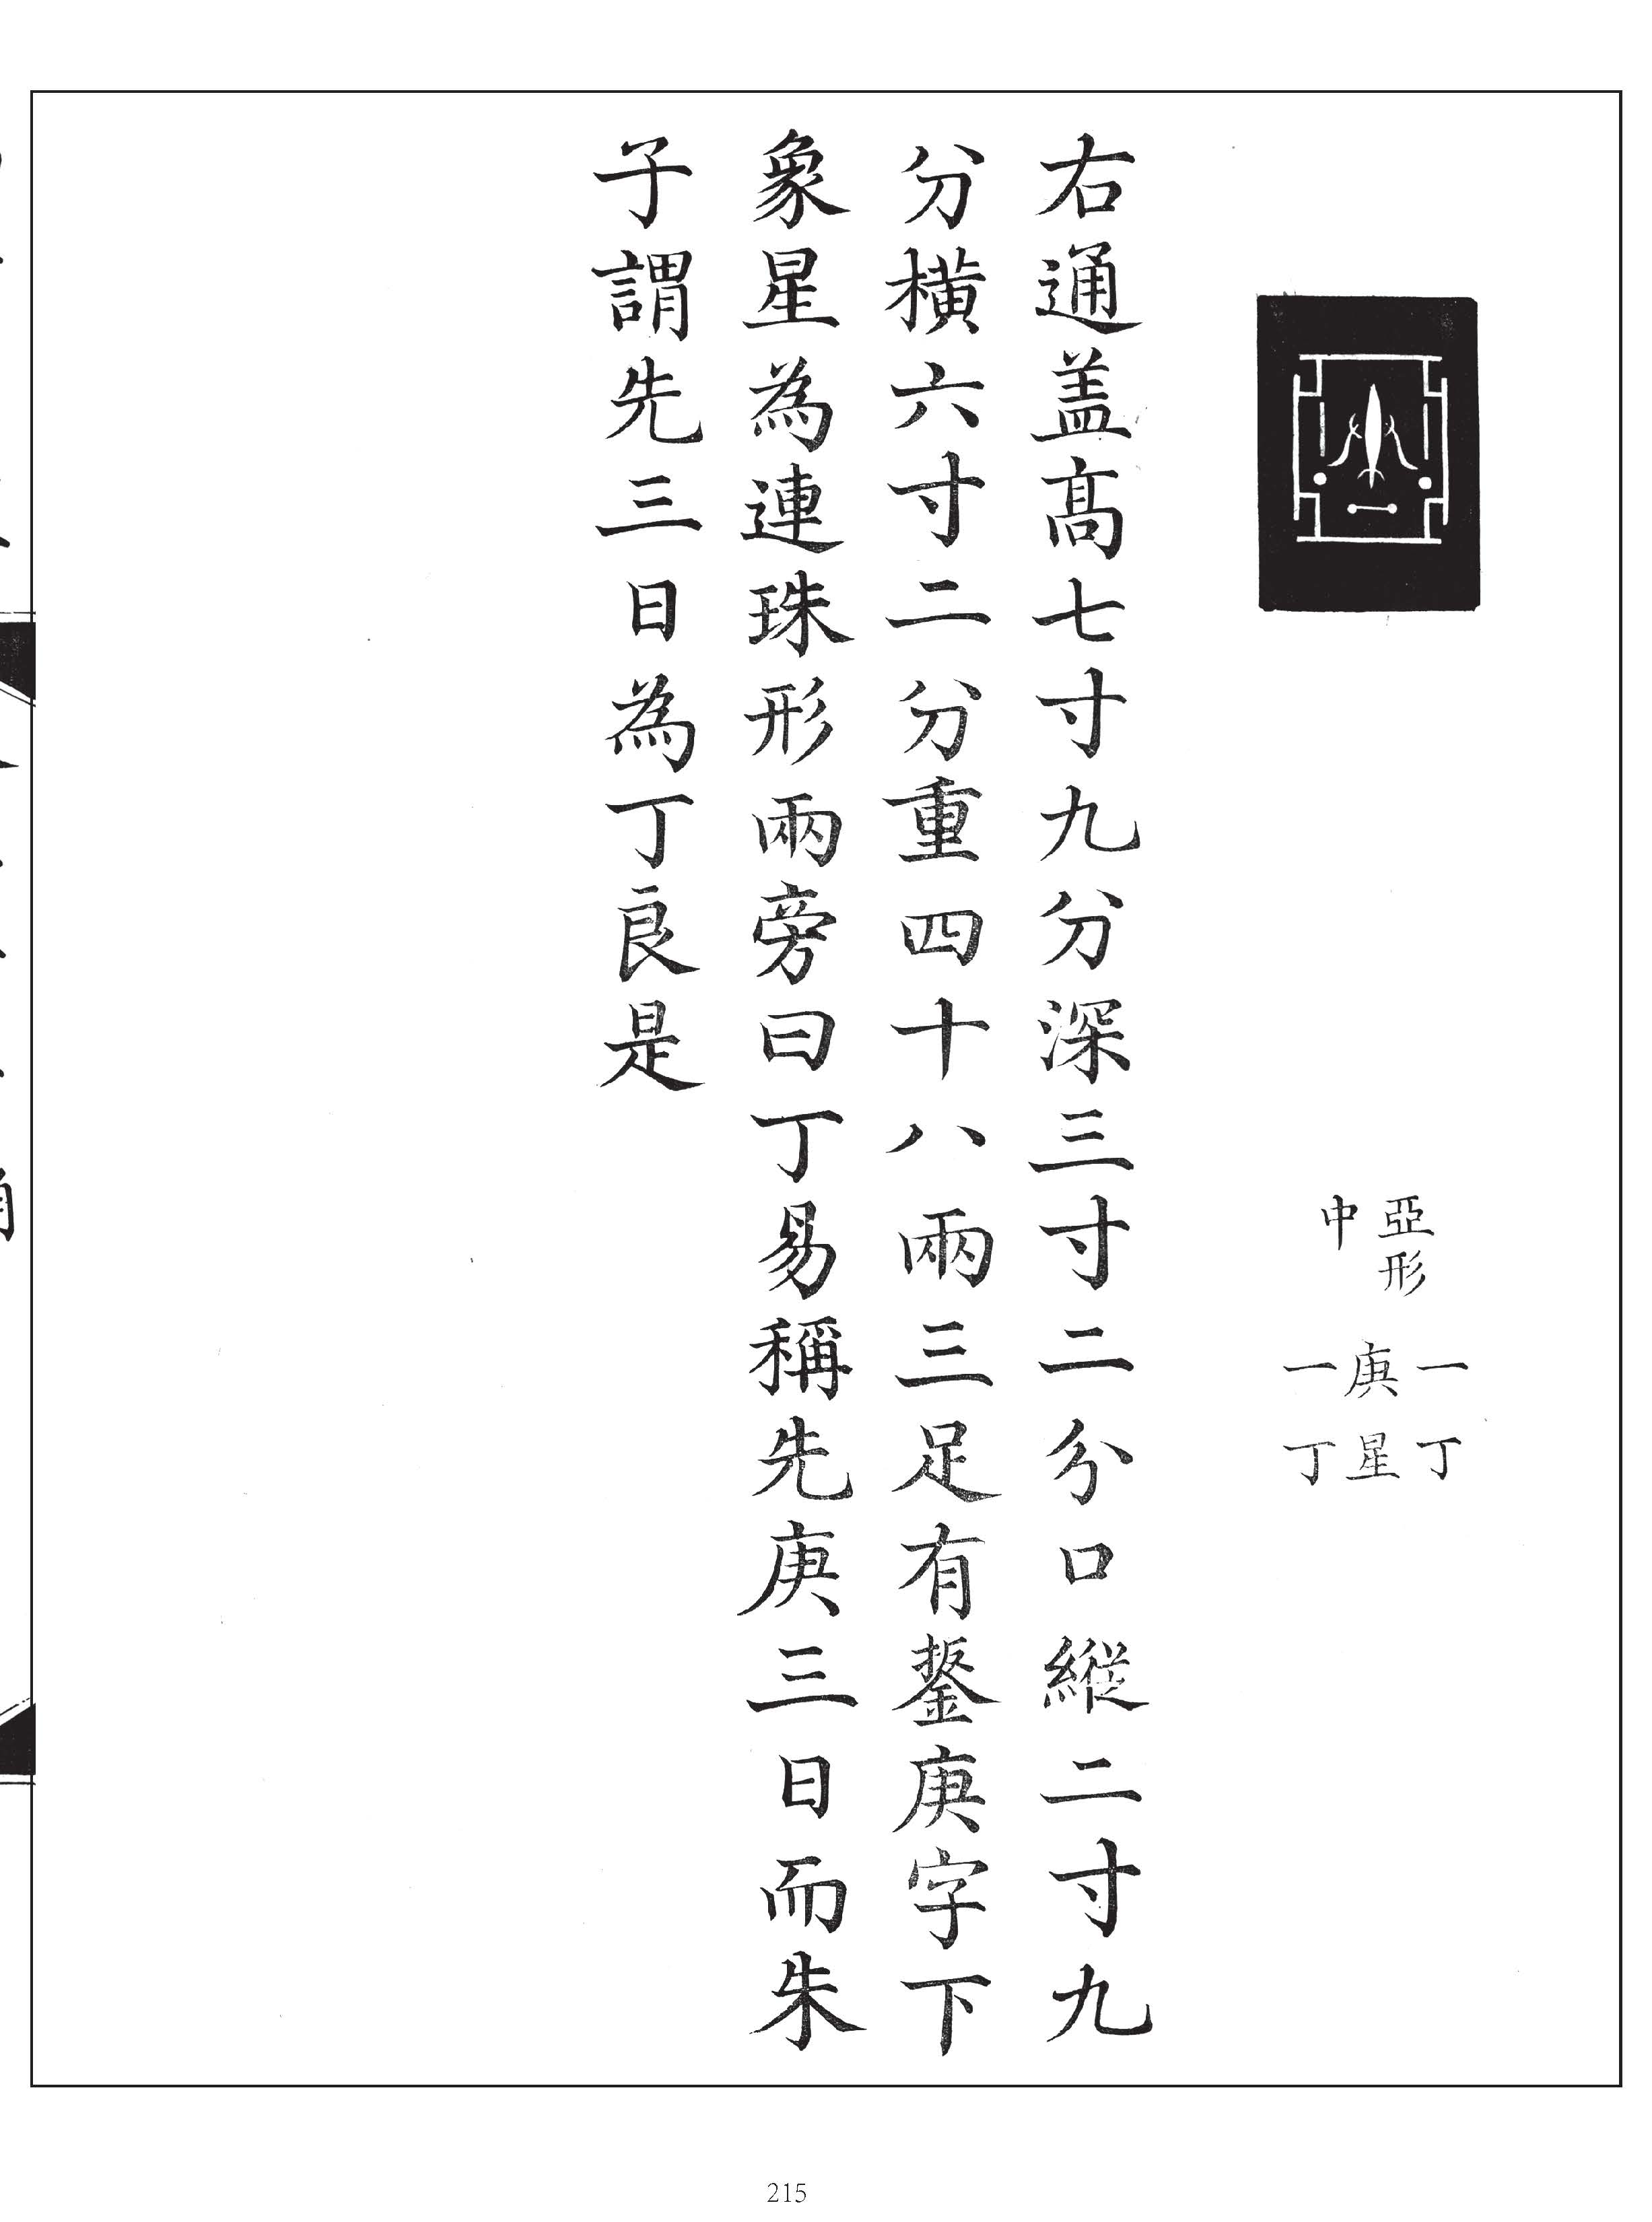 亞形
中
一庚一
丁星丁
右通盖髙七寸九分深三寸二分口縱二寸九
分橫六寸二分重四十八兩三足有鋬庚字下
象星為連珠形兩旁曰丁易稱先庚三日而朱
子謂先三日為丁良是
215